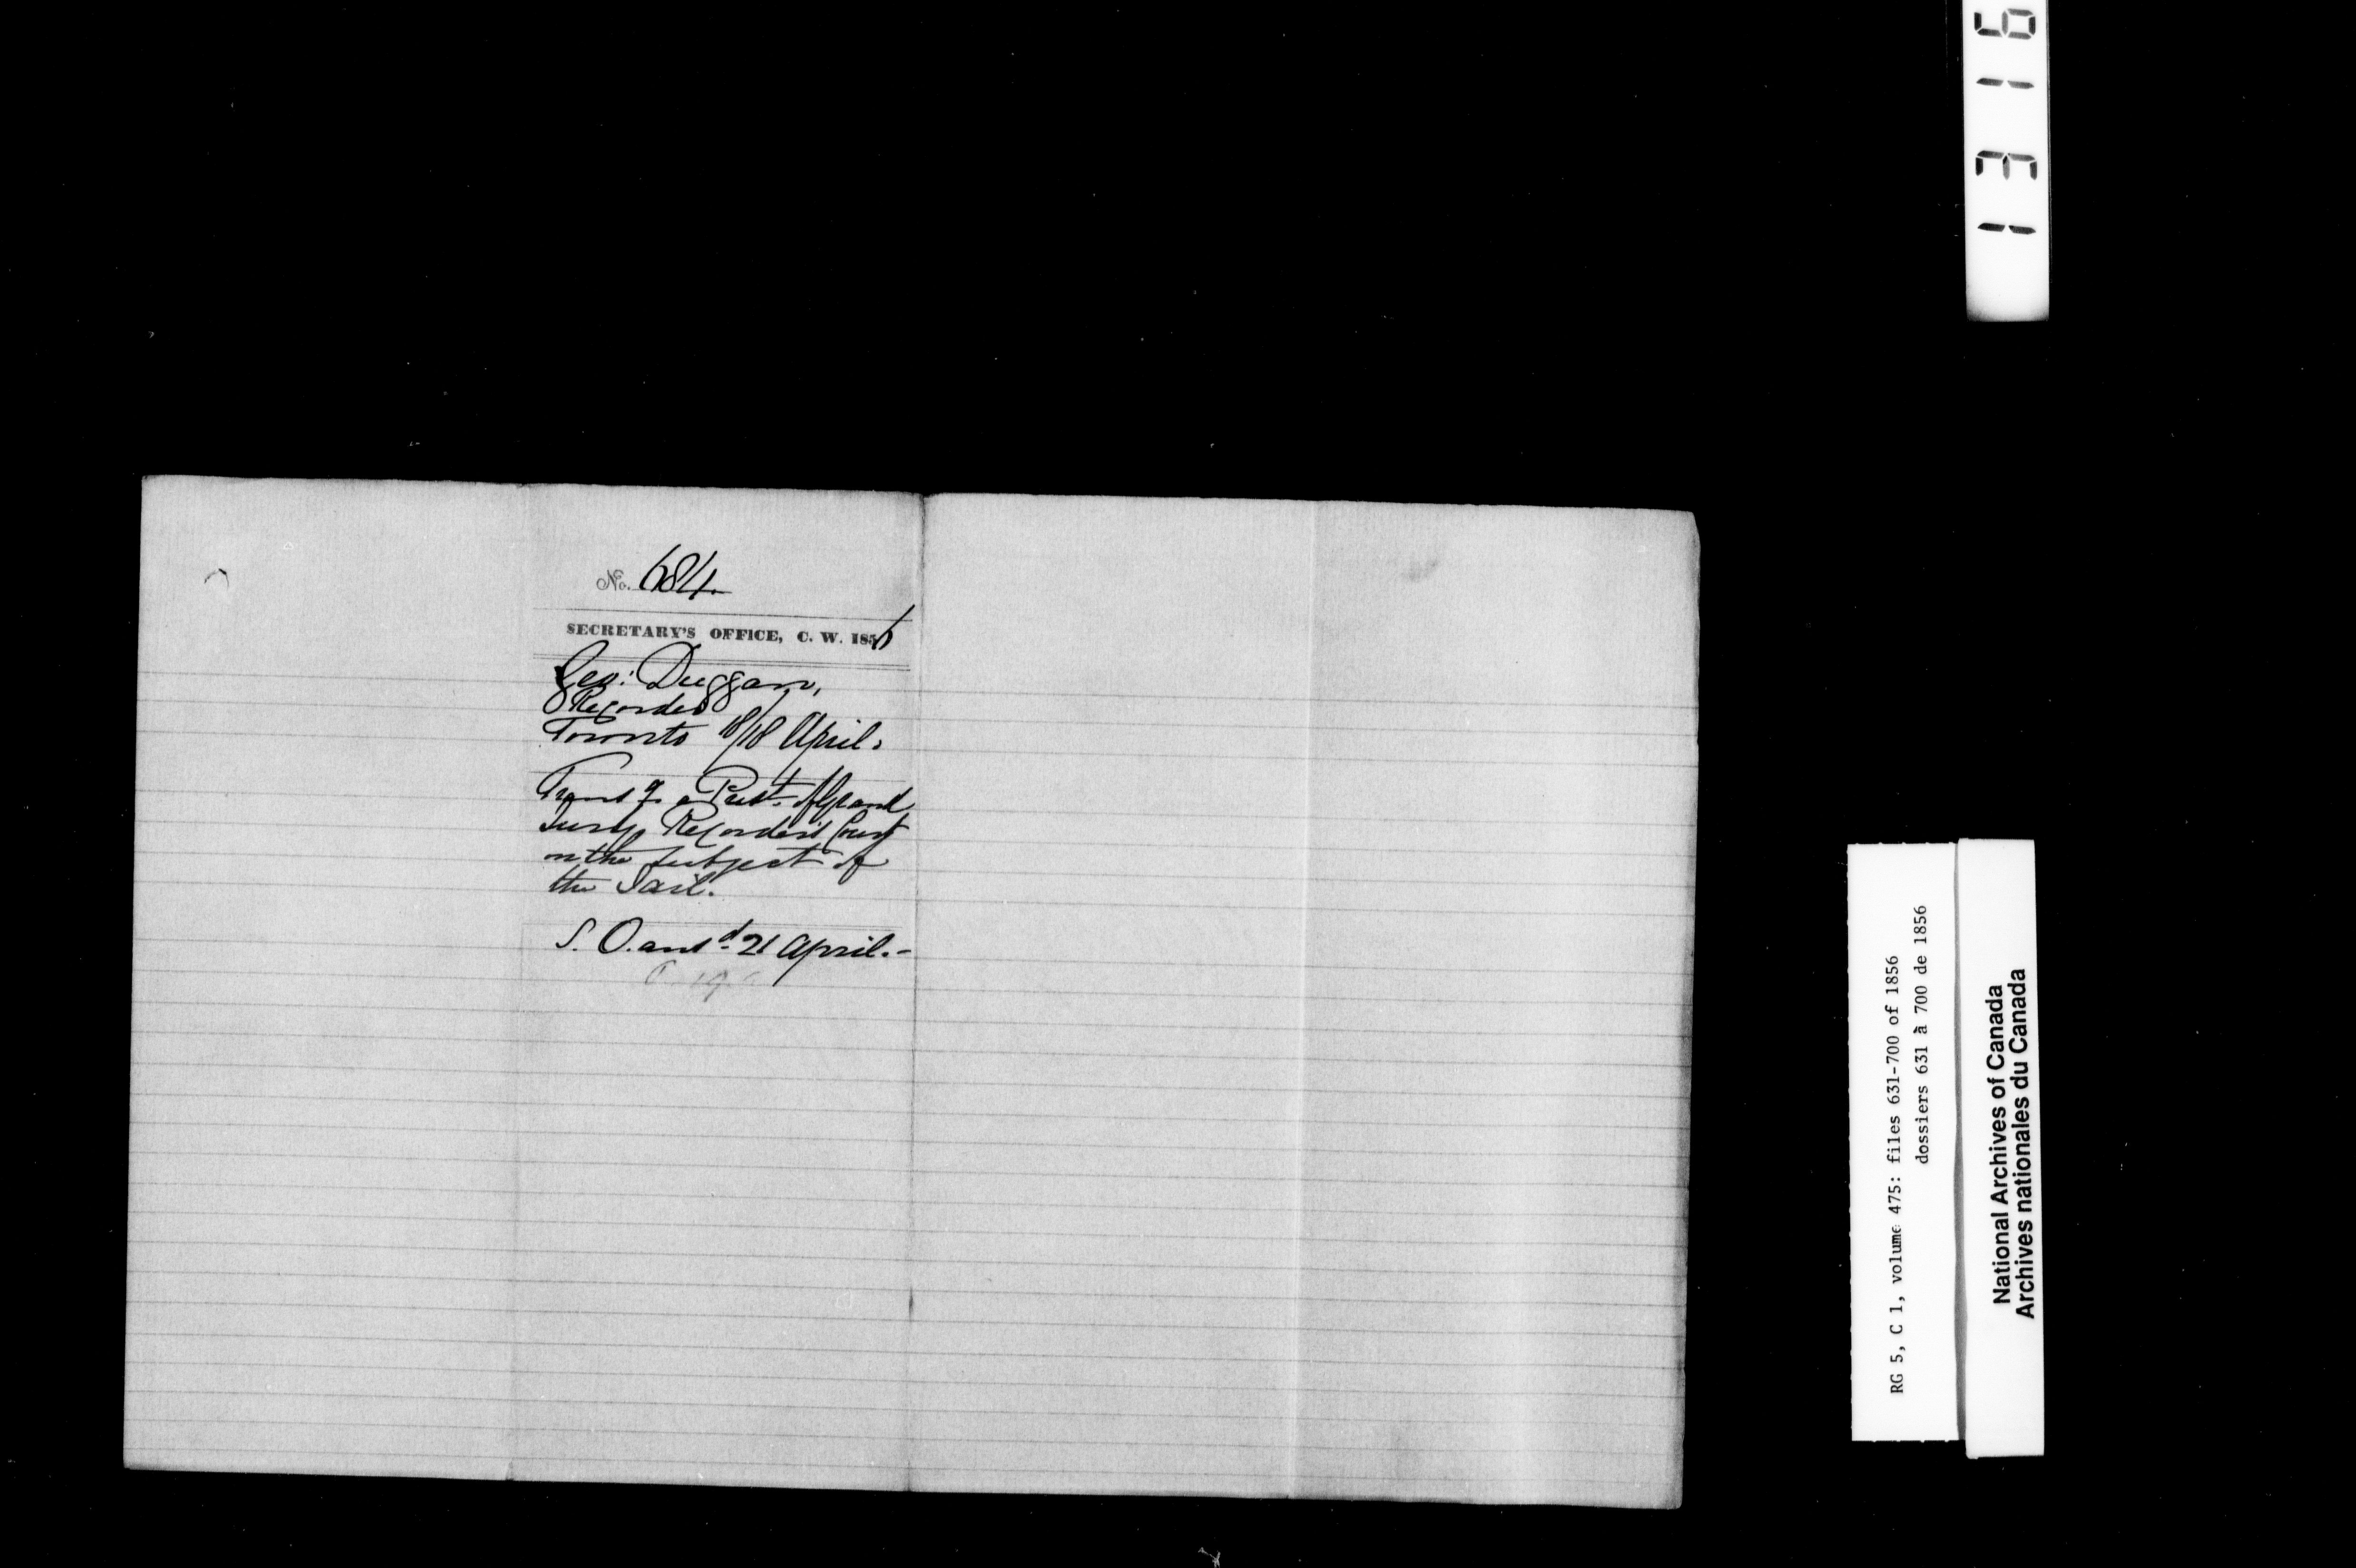 No. 684.
SECRETARY'S OFFICE, C. W. 1856
Geo: Duggan,
Recorder
Toronto 18/18 April.
Transg. a Prest. of Grand
Jury Recorder's Court
on the subject of
the Jail.
S. O. ansd. 21 April.-
1316
RG 5, C 1, volume 475: files 631-700 of 1856
dossiers 631 à 700 de 1856
National Archives of Canada
Archives nationales du Canada